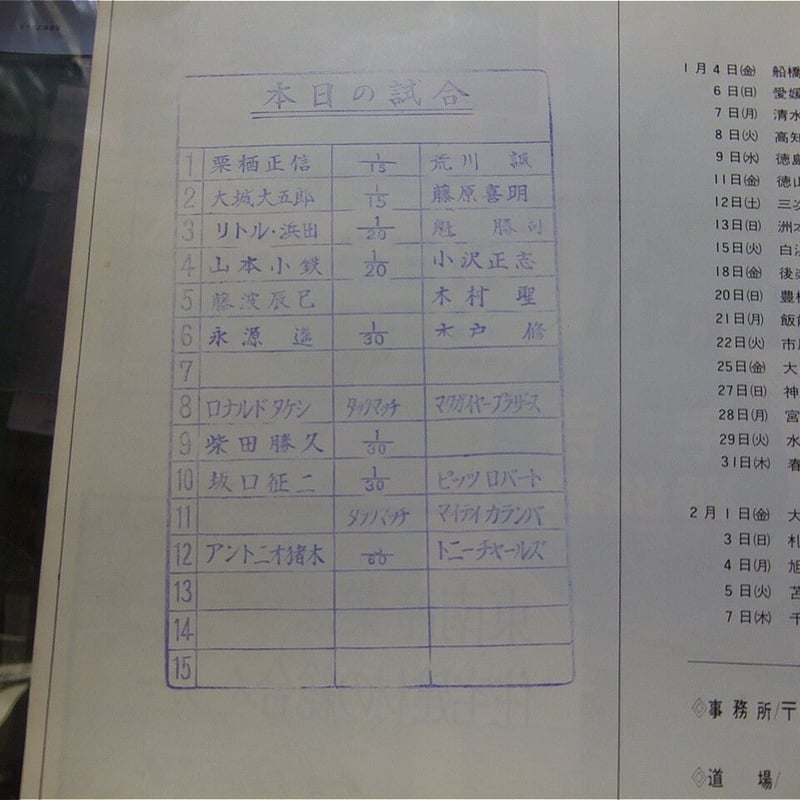 本日の試合
1 栗栖正信 1/15 荒川 誠
2 大城大五郎 1/15 藤原喜明
3 リトル・浜田 1/20 魁 勝司
4 山本小鉄 1/20 小沢正志
5 藤波辰巳 木村 聖
6 永源 遙 1/30 木戸 修
7
8 ロナルドタケシ タッグマッチ マクガイヤーブラザース
9 柴田勝久 1/30
10 坂口征二 1/30 ピッツロバート
11 タッグマッチ マイティカランバ
12 アントニオ猪木 1/60 トニーチャールズ
13
14
15
1月4日(金) 船橋
6日(日) 愛媛
7日(月) 清水
8日(火) 高知
9日(水) 徳島
11日(金) 徳山
12日(土) 三次
13日(日) 洲本
15日(火) 白浜
18日(金) 後楽
20日(日) 豊橋
21日(月) 飯能
22日(火) 市原
25日(金) 大
27日(日) 神
28日(月) 宮
29日(火) 水
31日(木) 春
2月1日(金) 大
3日(日) 札
4日(月) 旭
5日(火) 苫
7日(木) 千
◎事務所/〒
◎道場/